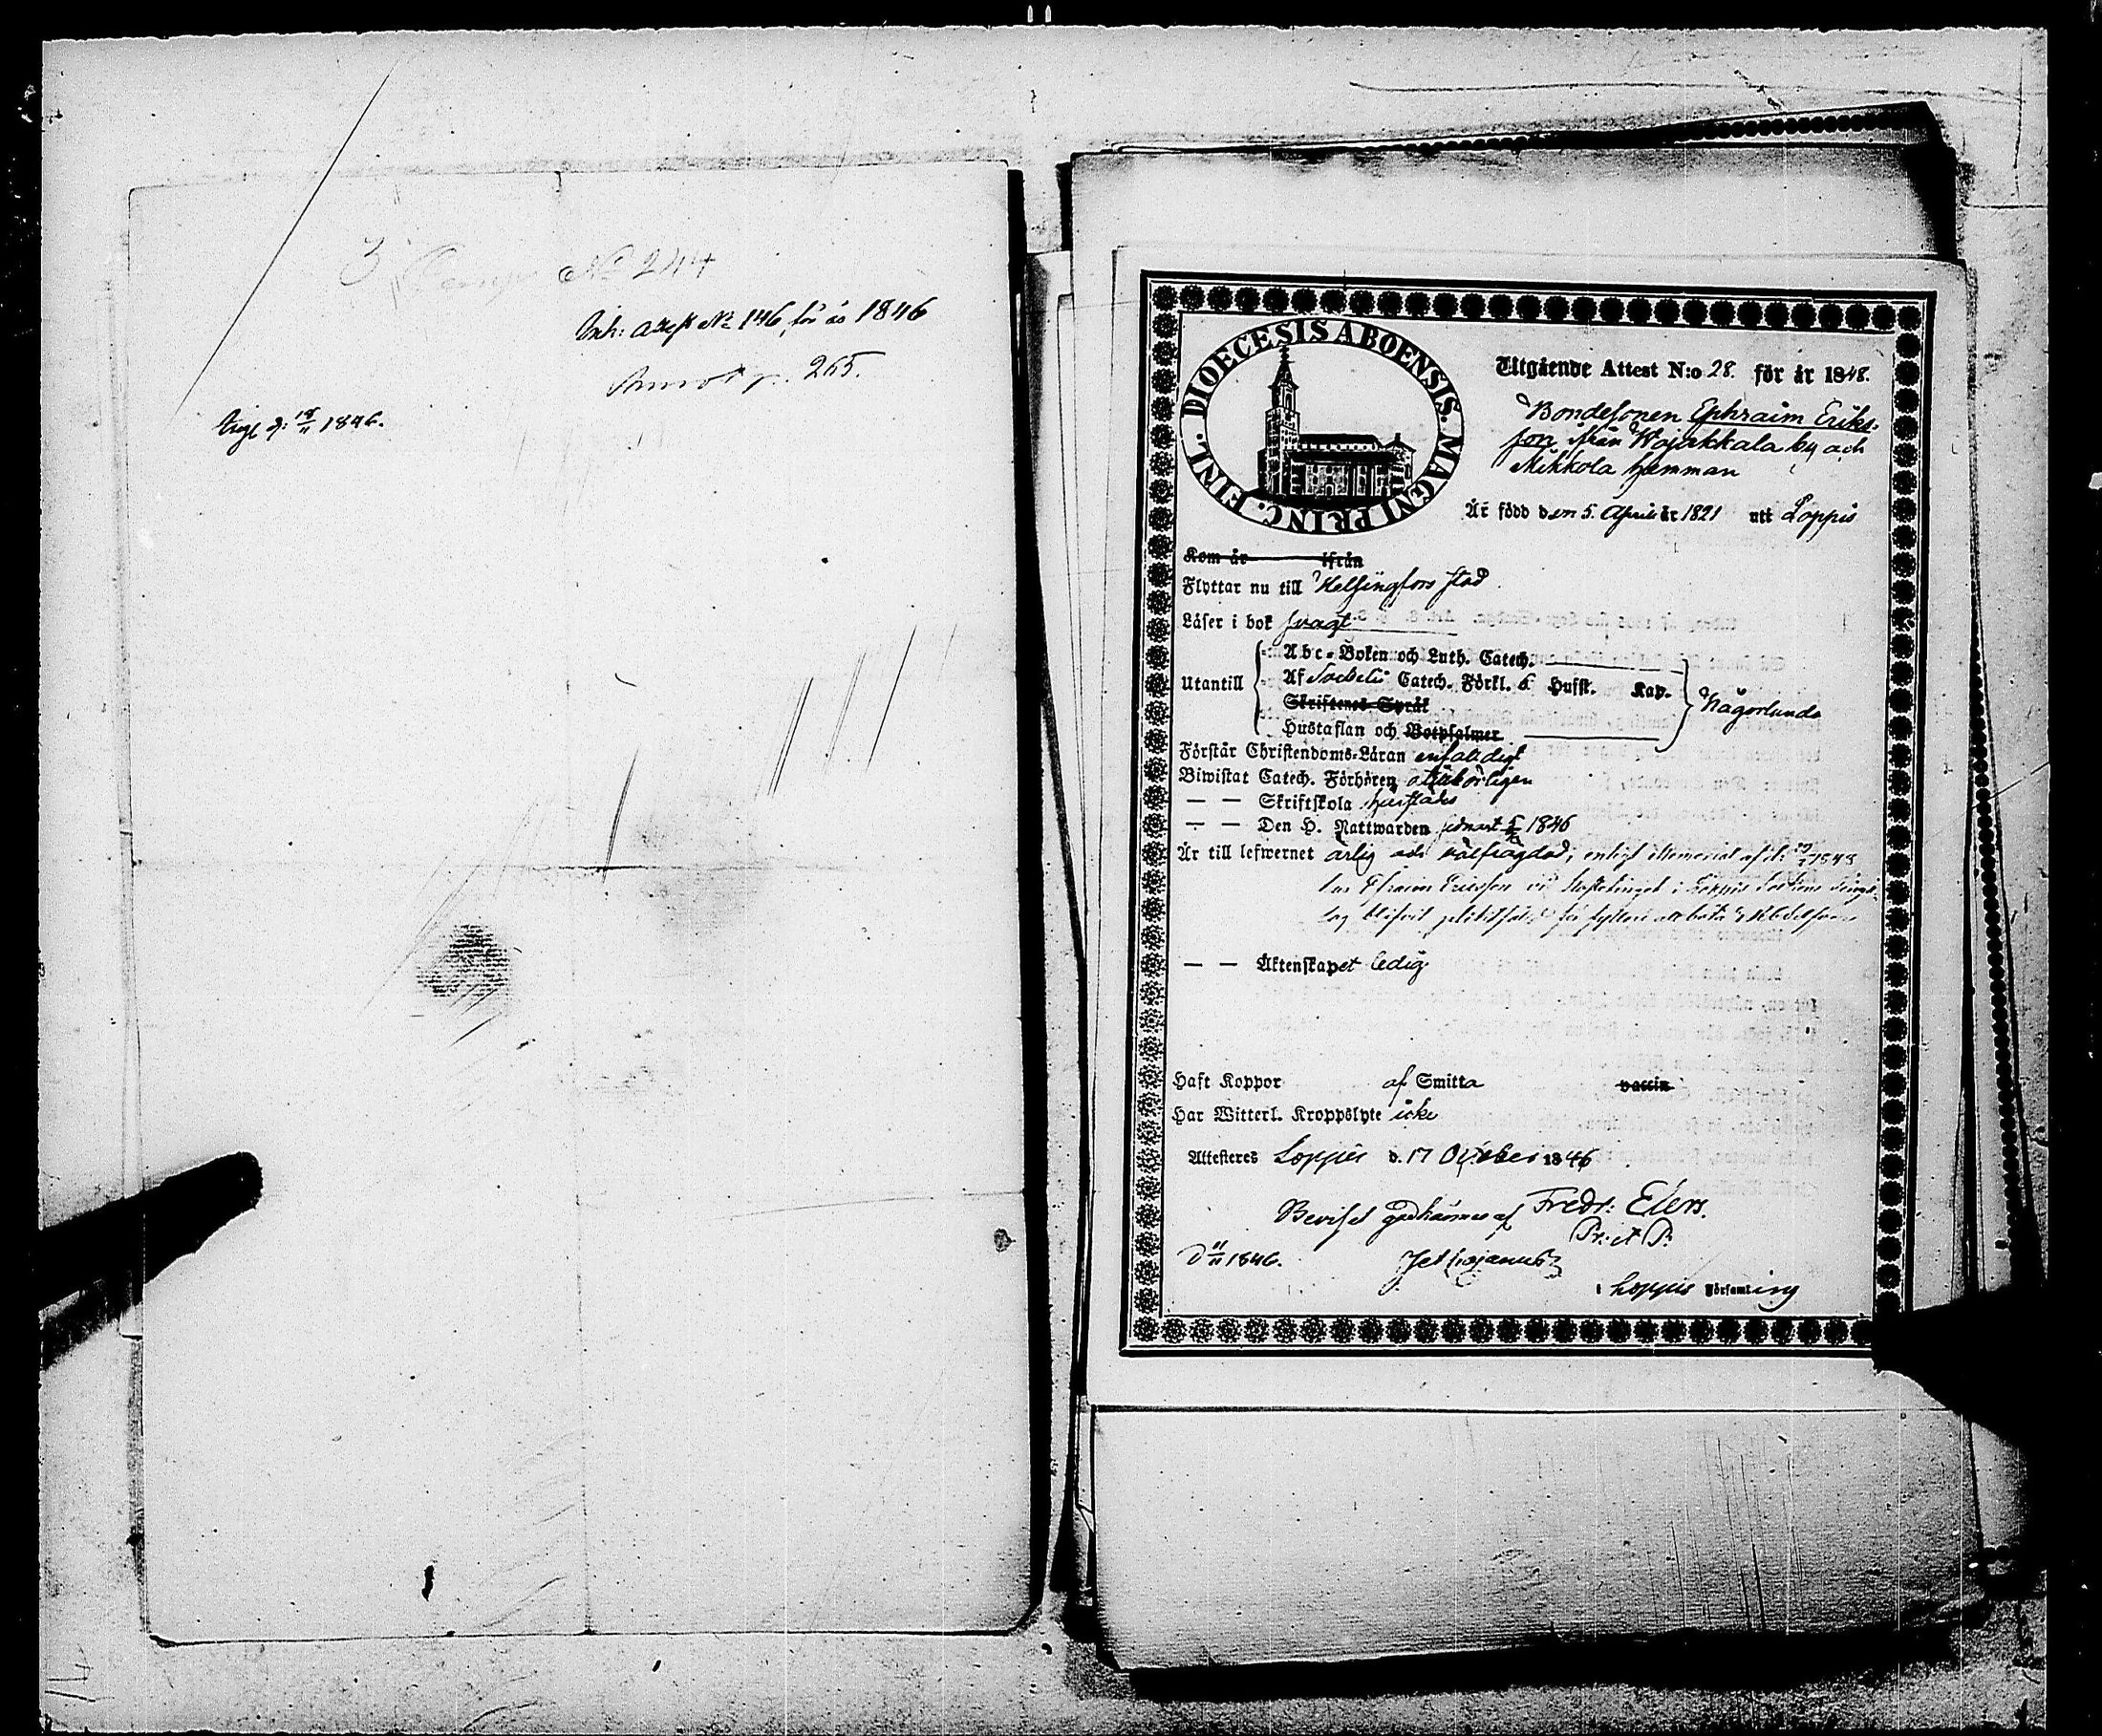 3 Comp N° 244
Inh: attest N° 146, för år 1846
Annot p. 265.
Vigd d: 15/11 1846.
DIOECESIS ABOENSIS. MAGNI PRINC. FINL.
Utgående Attest N:o 28. för år 1848.
Bondesonen Ephraim Eriks-
son ifrån Wojakkala by och
Mikkola hemman
Är född den 5. April år 1821 uti Loppis
Kom år ifrån
Flyttar nu till Helsingfors stad
Läser i bok svagt
Utantill
Abc-Boken och Luth. Catech.
Af Svebelii Catech. Förkl. 6 Hufst. Kap.
Skriftenes Språk
Hustaflan och Botpsalmer
Någorlunda
Förstår Christendoms-Läran enfaldigt
Biwistat Catech. Förhören
— — Skriftskola härstädes
— — Den H. Nattwarden sednast 1846
Är till lefwernet ärlig och välfrägdad; enligt Memorial af d:
har Ephraim Ericsson vid Loppis Sockens Tings-
lag blifvit för fylleri att böta
— — Äktenskapet ledig
Haft Koppor af Smitta vaccin
Har Witterl. Kroppslyte icke
Attesteras Loppis d. 17 October 1846
Beviset godkännes af Fredr: Elers.
P:
D 11/11 1846.
i Loppis Församling